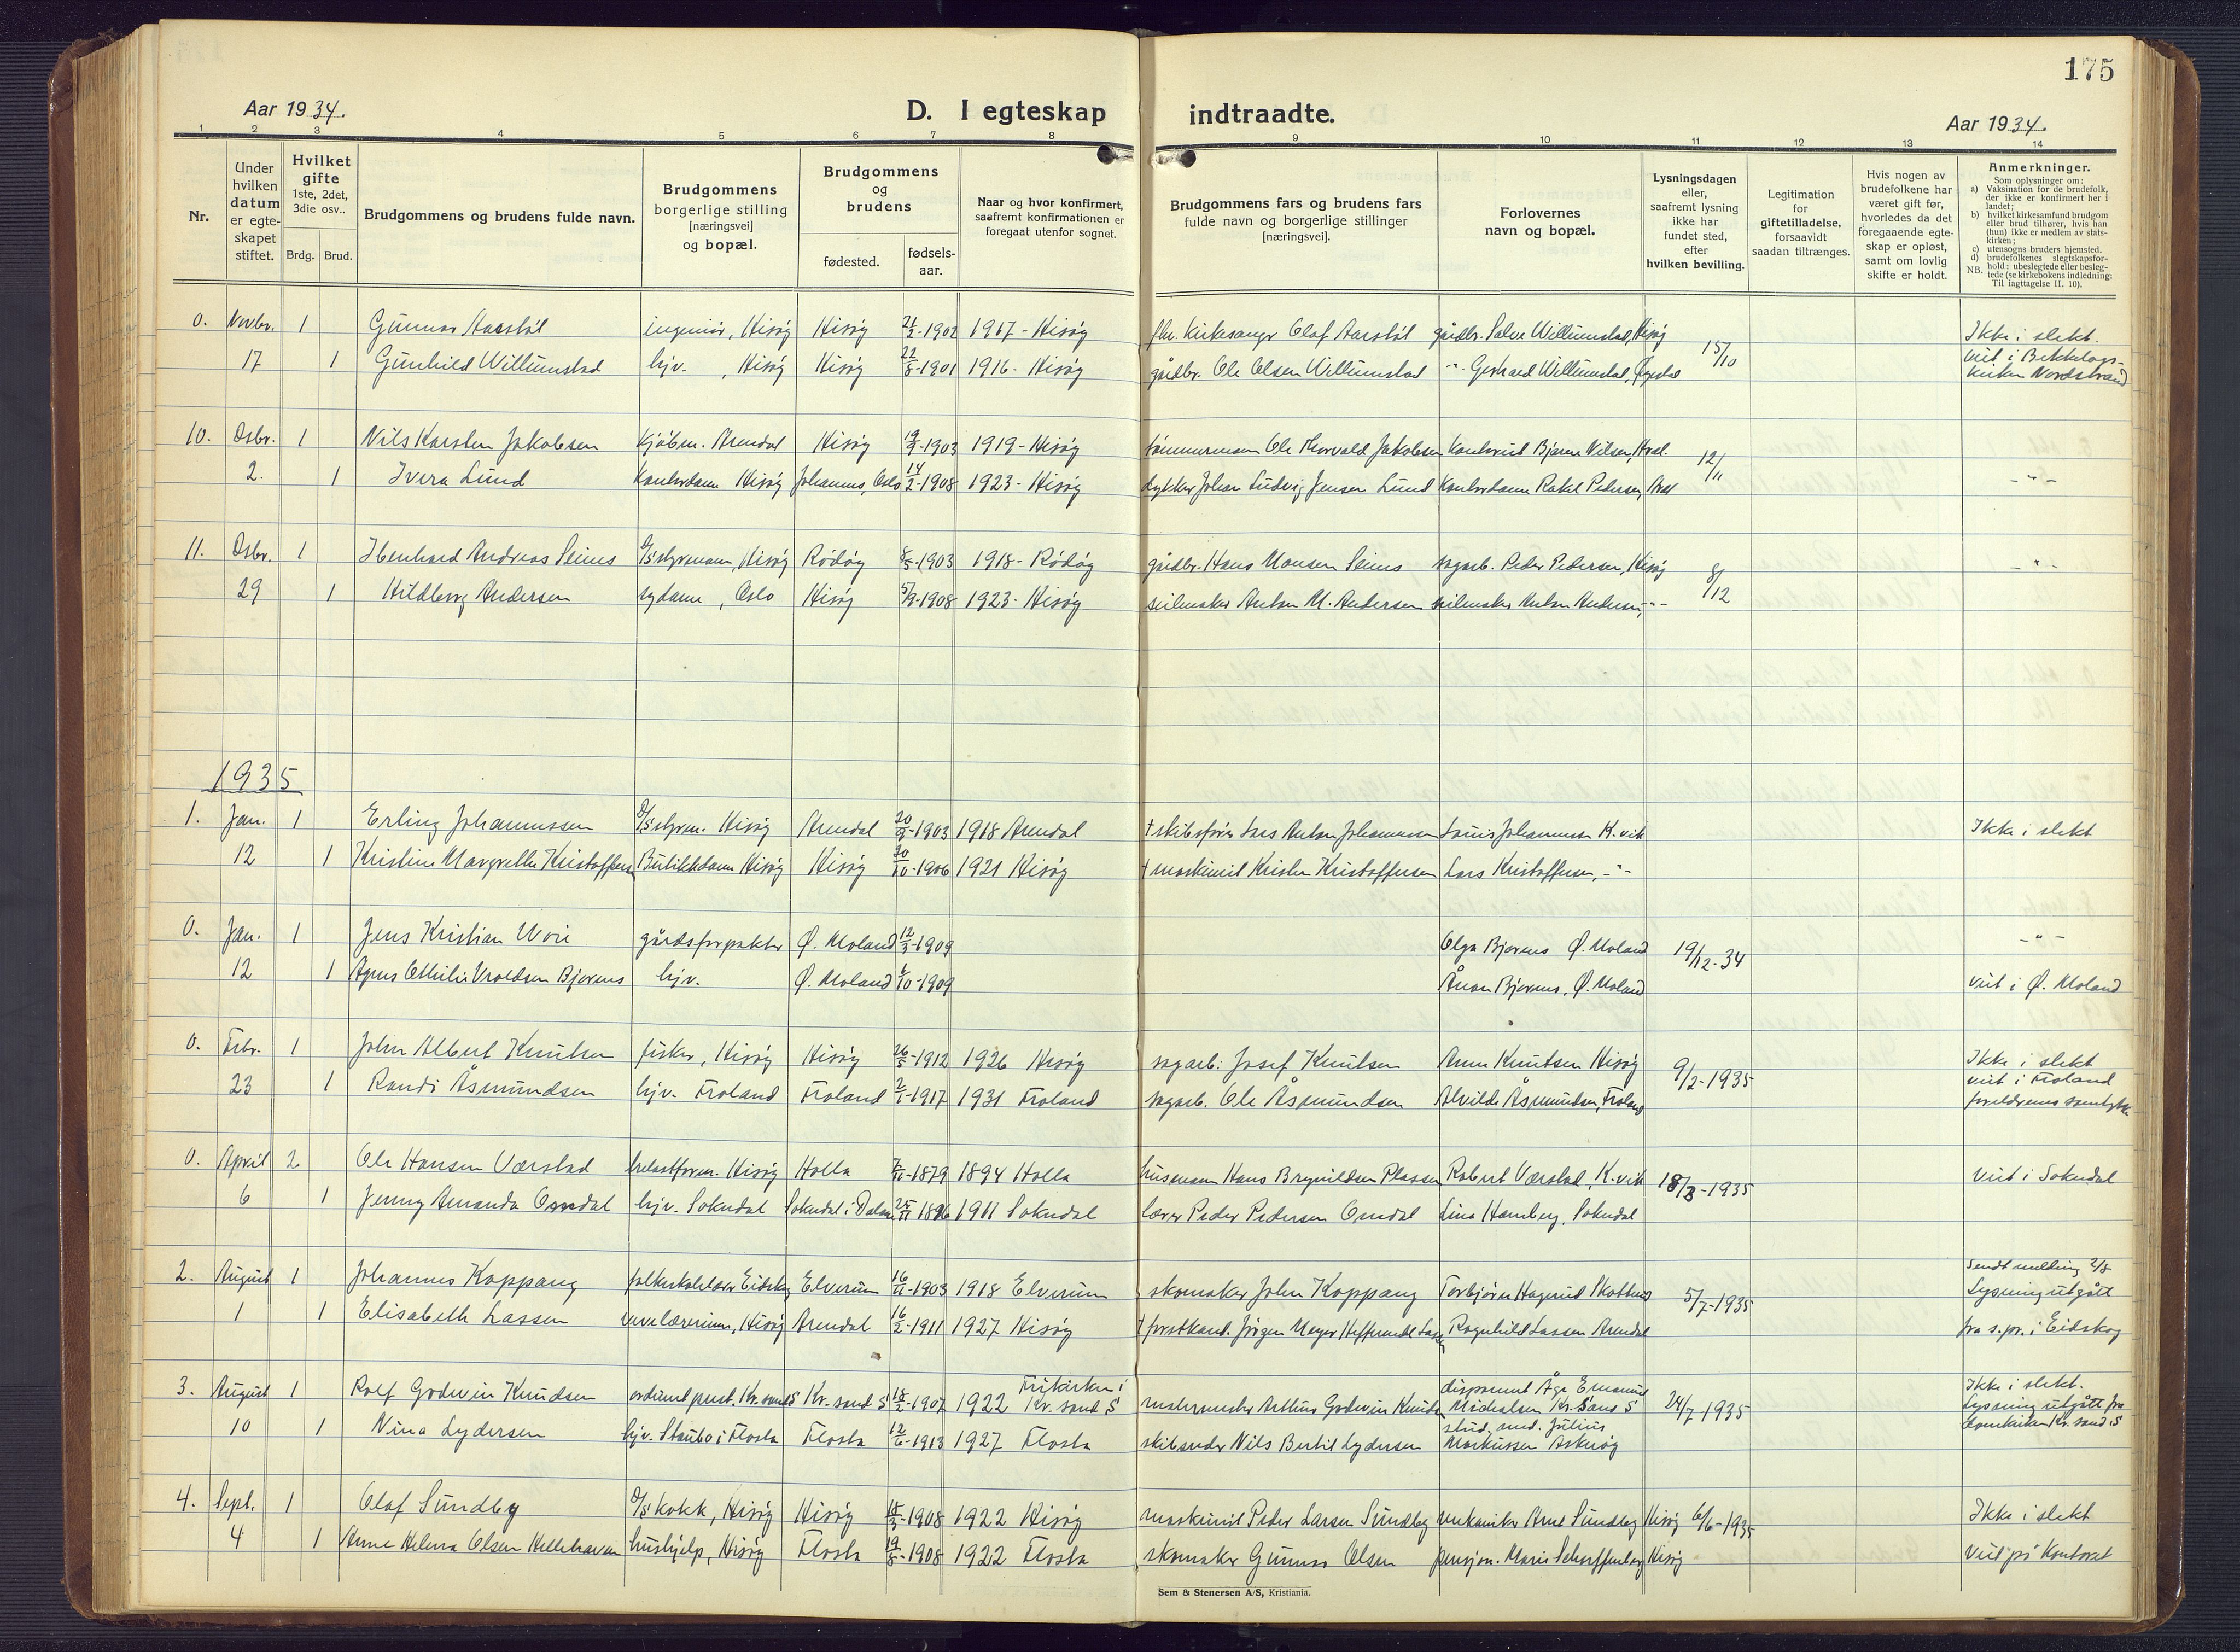 175
Aar 1934.
D. I egteskap indtraadte.
Aar 1934.
1 2 3 4 5 6 7 8 9 10 11 12 13 14
Nr.
Under hvilken datum er egte-skapet stiftet.
Hvilket gifte 1ste, 2det, 3die osv..
Brdg. Brud.
Brudgommens og brudens fulde navn.
Brudgommens borgerlige stilling [næringsvei] og bopæl.
Brudgommens og brudens
fødested.
fødsels-aar.
Naar og hvor konfirmert, saafremt konfirmationen er foregaat utenfor sognet.
Brudgommens fars og brudens fars fulde navn og borgerlige stillinger [næringsvei].
Forlovernes navn og bopæl.
Lysningsdagen eller, saafremt lysning ikke har fundet sted, efter hvilken bevilling.
Legitimation for giftetilladelse, forsaavidt saadan tiltrænges.
Hvis nogen av brudefolkene har været gift før, hvorledes da det foregaaende egte-skap er opløst, samt om lovlig skifte er holdt.
Anmerkninger.
Som oplysninger om:
a) Vaksination for de brudefolk, der ikke er konfirmert her i landet;
b) hvilket kirkesamfund brudgom eller brud tilhører, hvis han (hun) ikke er medlem av stats-kirken;
c) utensogns bruders hjemsted.
d) brudefolkenes slegtskapsfor-hold: ubeslegtede eller besleg-tede (se kirkebokens indledning:
NB. Til iagttagelse II. 10).
0. Novbr. 1 Gunnar Aarstøl ingeniør, Hisøy Hisøy -1902 1917 - Hisøy fhv. kirkesanger Olaf Aarstøl gårdbr. Salve Willumstad, Hisøy 15/10 Ikke i slekt.
17 1 Gunhild Willumstad hjv. , Hisøy Hisøy 22/8-1901 1916 - Hisøy gårdbr. Ole Olsen Willumstad -"- Gerhard Willumstad, Øyestad viet i Bekkelags-
kirken Nordstrand
10. Dsbr. 1 Nils Karsten Jakobsen kjøbm. Arendal Hisøy 19/9-1903 1919 - Hisøy tømmermann Ole Thorvald Jakobsen Kontorist Bjarne Nilsen, Aral. 12/11
2. 1 Ivera Lund Kontordame Hisøy Johannes, Oslo 14/2-1908 1923 - Hisøy dykker Johan Ludvig Jensen Lund Kontordame Rakel Pedersen, Aral -"-
11. Dsbr. 1 Ibenhard Andreas Seines D/S styrmann, Hisøy Rødøy 8/5-1903 1918 - Rødøy gårdbr. Hans Hansen Seines sagarb. Peder Pedersen, Hisøy 8/12 -"-
29 1 Hildborg Andersen sydame , Oslo Hisøy 5/9-1908 1923 - Hisøy seilmaker Anton M. Andersen seilmaker Anton Andersen, -"-
1935
1. Jan. 1 Erling Johannessen D/S styrm. Hisøy Arendal 20/9-1903 1918 Arendal † skibsfører Lars Anton Johannessen Louis Johannessen K.vik Ikke i slekt
12 1 Kristine Margrethe Kristoffersen Butikkdame Hisøy Hisøy 20/10-1906 1921 Hisøy † maskinist Kristen Kristoffersen Lars Kristoffersen, -"-
0. Jan. 1 Jens Kristian Woie gårdsforpakter Ø. Moland 12/3-1909 Olga Bjorens Ø. Moland 19/12-34 -"-
12 1 Agnes Othilie Vroldsen Bjorens hjv. Ø. Moland /10-1909 Ånon Bjorens, Ø. Moland viet i Ø. Moland
0. Febr. 1 John Albert Knutsen fisker, Hisøy Hisøy 26/5-1912 1926 Hisøy sagarb. Josef Knutsen Anne Knutsen Hisøy 9/2-1935 Ikke i slekt
23 1 Randi Åsmundsen hjv. Froland Froland 2/1-1917 1931 Froland sagarb. Ole Åsmundsen Alvilde Åsmundsen, Froland viet i Froland
foreldrenes samtykke
0. April 2 Ole Hansen Værstad Hisøy Holla 7/11-1879 1894 Holla husmann Hans Brynildsen Plassen Robert Værstad, K.vik 18/3-1935 Viet i Sokndal
6 1 Jenny Amanda Omdal hjv. Sokndal Sokndal i Dalane 25/11 1896 1911 Sokndal lærer Peder Pedersen Omdal Lina Hamberg, Sokndal
2. August 1 Johannes Koppang folkeskolelærer Eidskog Elverum 16/11-1903 1918 Elverum skomaker John Koppang Torbjørn Hagerud Skotterud 5/7-1935 Sendt melding 2/8
Lysning utgått
1 1 Elisabeth Lassen vevelærerinne, Hisøy Arendal 16/2-1911 1927 Hisøy † forstkand. Jørgen Meyer Lassen Ragnhild Lassen Arendal fra s.pr. i Eidskog
3. August 1 Rolf Godwin Knudsen ordinert prest. Kr.sand S Kr.sand S 18/2-1907 1922 Frikirken i Kr.sand S malermester Arthur Godwin Knudsen disponent Åge Emanuel Mikalsen Kr.sand S 24/7-1935 Ikke i slekt.
Lysning utgått fra
Domkirken Kr.sand S
10 1 Nina Lydersen hjv. Staubo i Flosta Flosta 12/6-1913 1927 Flosta skibsreder Nils Bertil Lydersen stud. med. Julius Markussen Askerøy
4. Sept. 1 Olaf Sundby D/S kokk, Hisøy Hisøy -1908 1922 Hisøy maskinist Peder Larsen Sundby mekaniker Arne Sundby Hisøy 6/6-1935 Ikke i slekt
4 1 Anne Helene Olsen Hellehaven hushjelp, Hisøy Flosta 19/8-1908 1922 Flosta skomaker Gunnar Olsen pensjon. Marie Scharffenberg Hisøy Viet på Kontoret
Sem & Stenersen A/S, Kristiania.